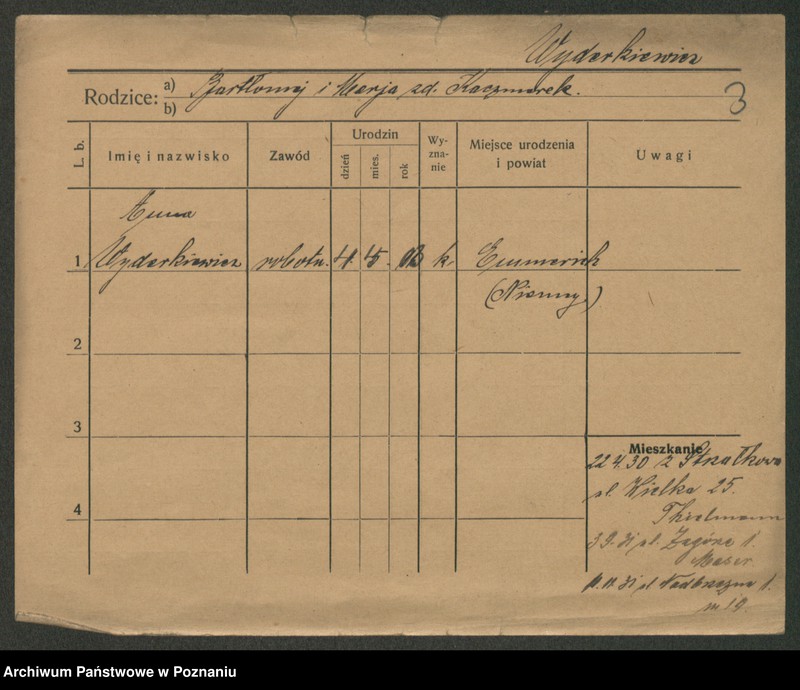 Wyderkiewicz
Rodzice: a) Bartłomiej i Marja zd. Kaczmarek.
b)
3
L. b.
Imię i nazwisko
Zawód
Urodzin
dzień
mies.
rok
Wy-
zna-
nie
Miejsce urodzenia
i powiat
Uwagi
Anna
1 Wyderkiewicz robotn. 4. 5. k. Emmerich
(Niemcy.)
2
3
4
Mieszkanie
22.4.30 z Strzałkowa
pl. Wielka 25.
Thielmann
3.9.31 pl. Zagórze 1.
31 pl. Nadbrzeżna 1.
m 19.
Archiwum Państwowe w Poznaniu